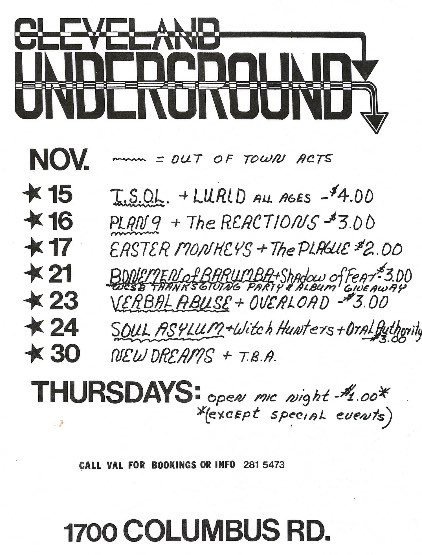 CLEVELAND
UNDERGROUND
NOV. = OUT OF TOWN ACTS
★ 15 T.S.O.L. + LURID ALL AGES - $4.00
★ 16 PLAN 9 + The REACTIONS - $3.00
★ 17 EASTER MONKEYS + The PLAGUE $2.00
★ 21 BONEMEN of BARUMBA + Shadow of Fear $3.00
WCSB THANKSGIVING PARTY & ALBUM GIVEAWAY
★ 23 VERBAL ABUSE + OVERLOAD - $3.00
★ 24 SOUL ASYLUM + Witch Hunters + Oral Authority
$3.00
★ 30 NEW DREAMS + T.B.A.
THURSDAYS: open mic night - $1.00*
*(except special events)
CALL VAL FOR BOOKINGS OR INFO 281 5473
1700 COLUMBUS RD.